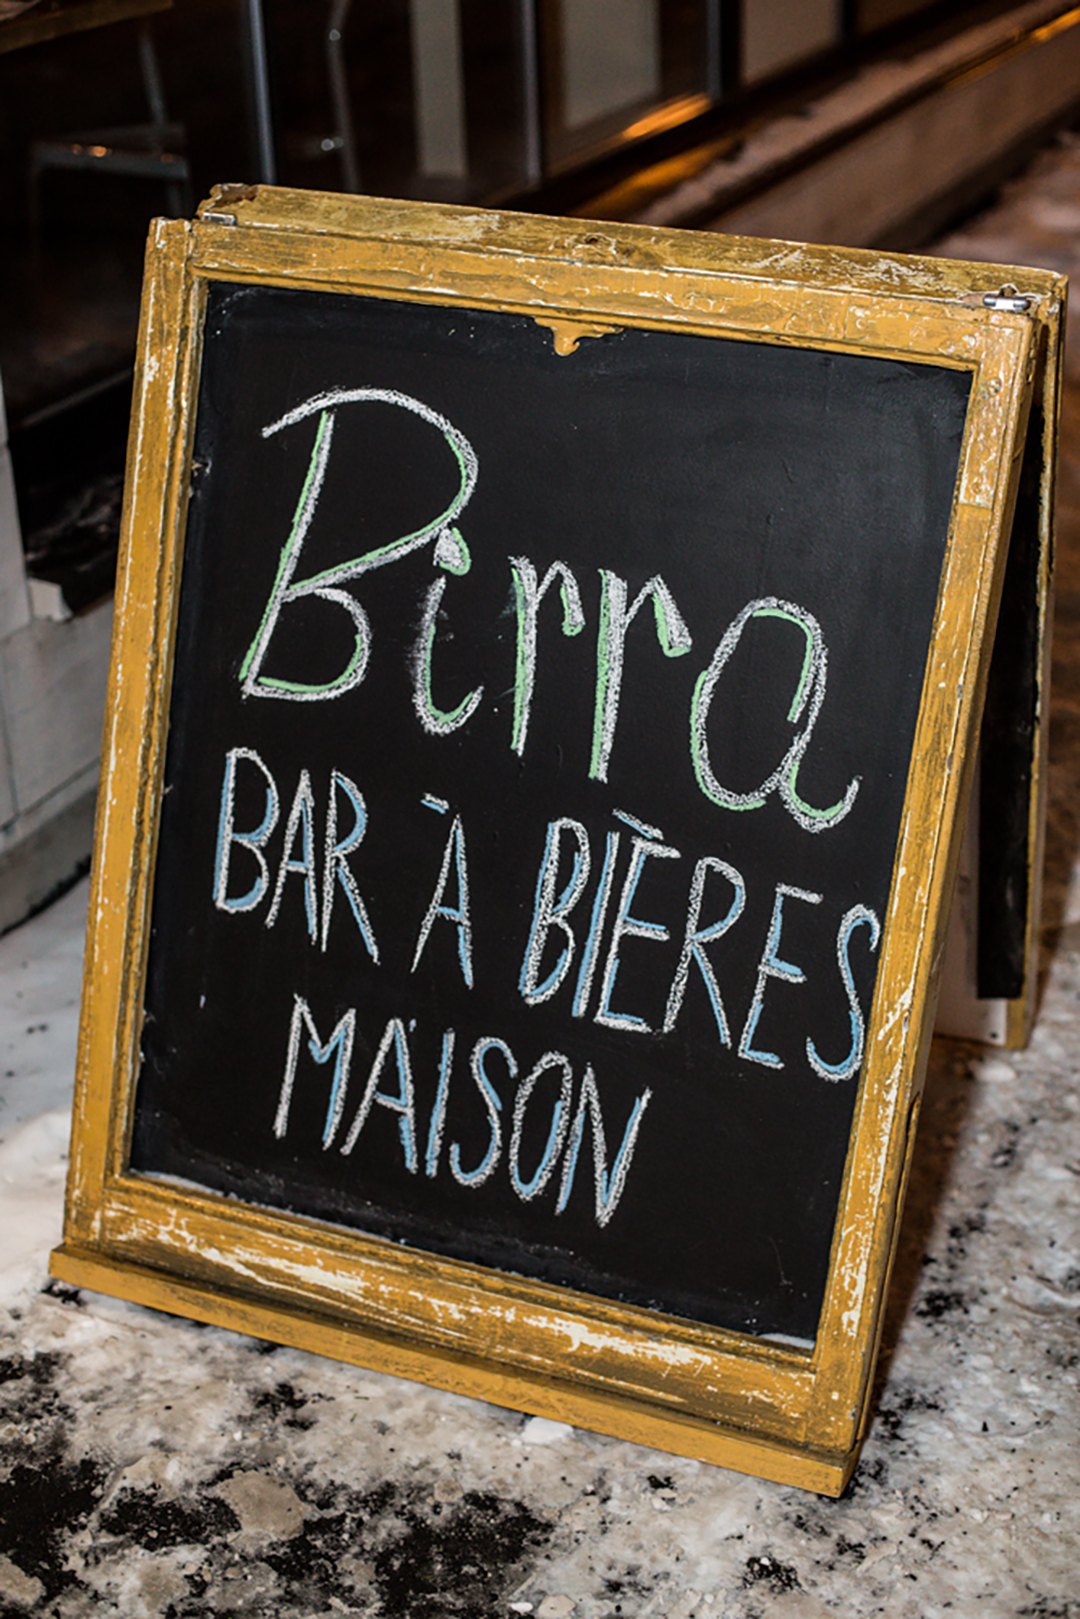 Birra
BAR À BIÈRES
MAISON